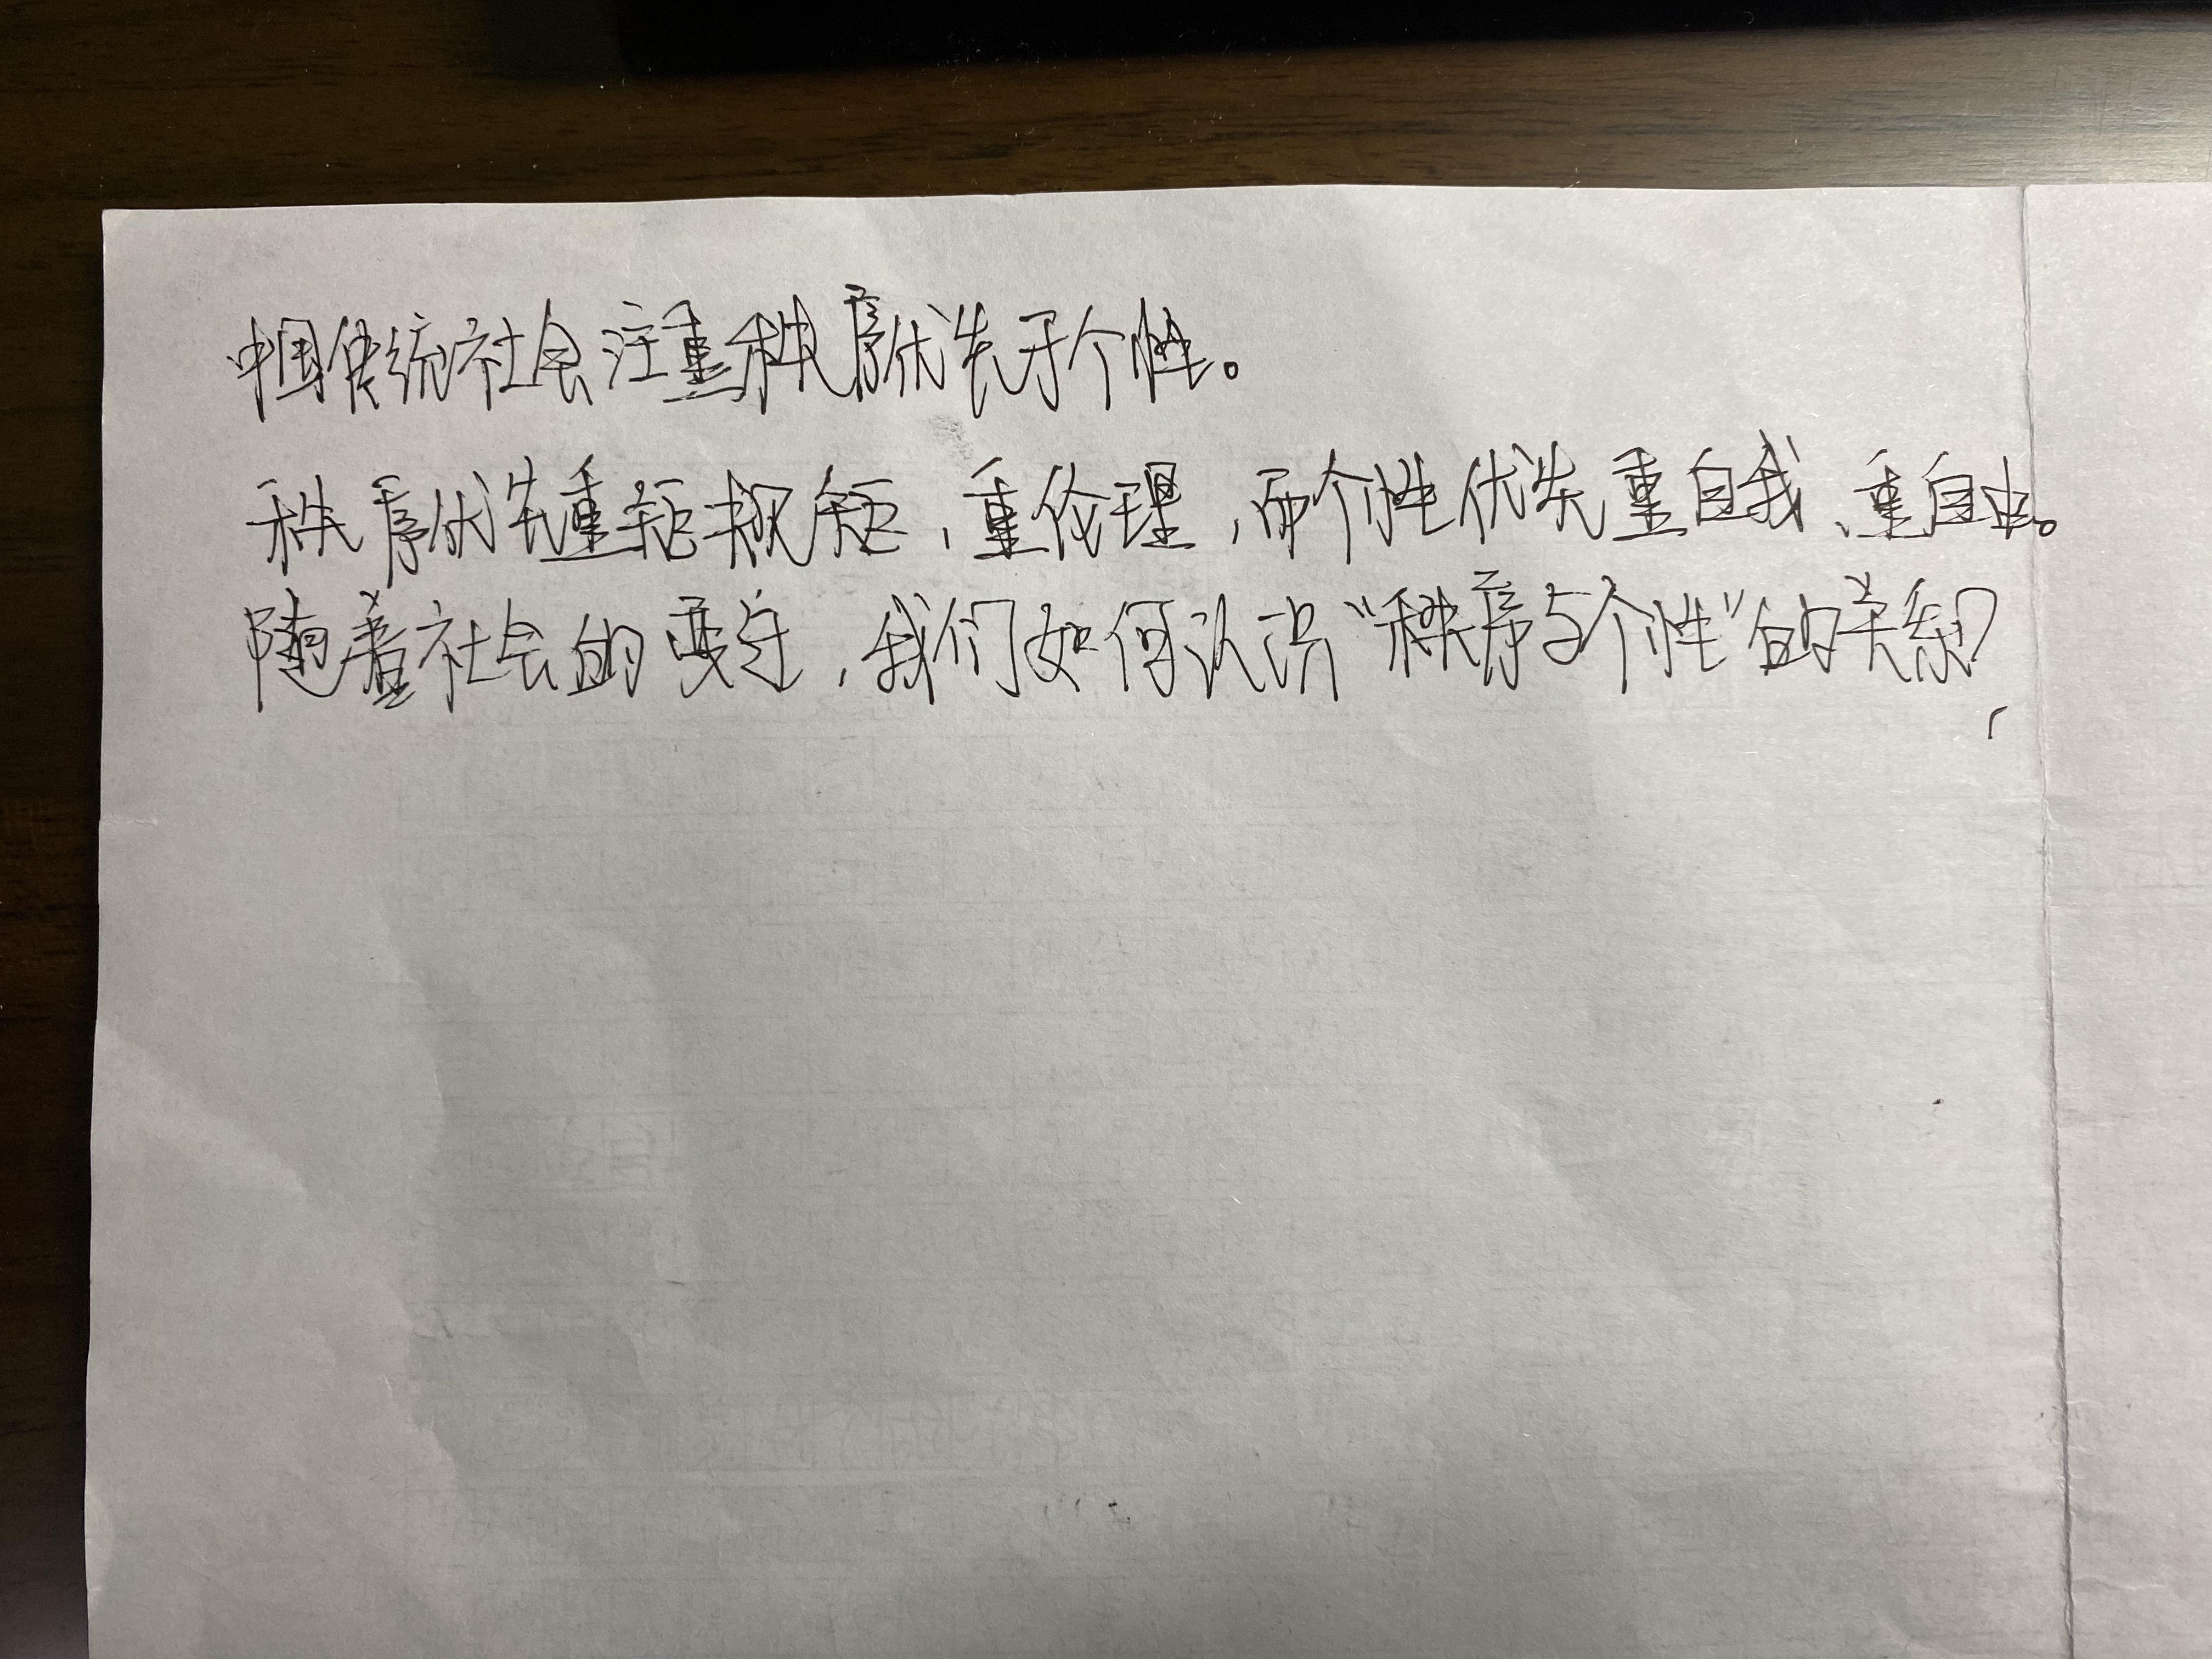 中国传统社会注重秩序优先于个性。
秩序优先重矩规矩，重伦理，而个性优先重自我、重自由。
随着社会的变迁，我们如何认识“秩序与个性”的关系？